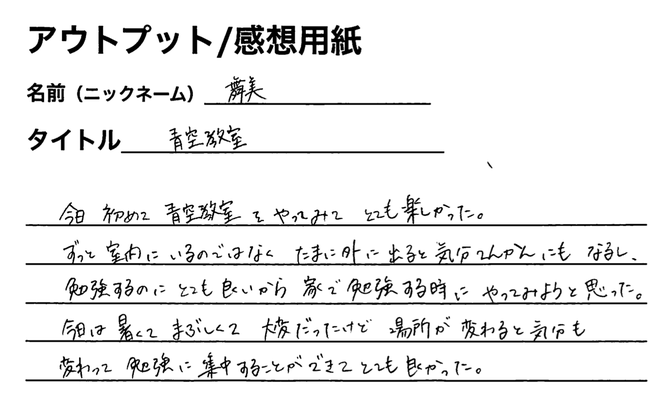 アウトプット/感想用紙
名前（ニックネーム） 舞美
タイトル 青空教室
今日 初めて 青空教室 を やってみて とても楽しかった。
ずっと 室内に いるのではなく たまに外に 出ると 気分てんかんにも なるし、
勉強するのに とても 良いから 家で 勉強する時に やってみようと思った。
今日は 暑くて まぶしくて 大変だったけど 場所が 変わると 気分も
変わって 勉強に 集中することが できて とても 良かった。